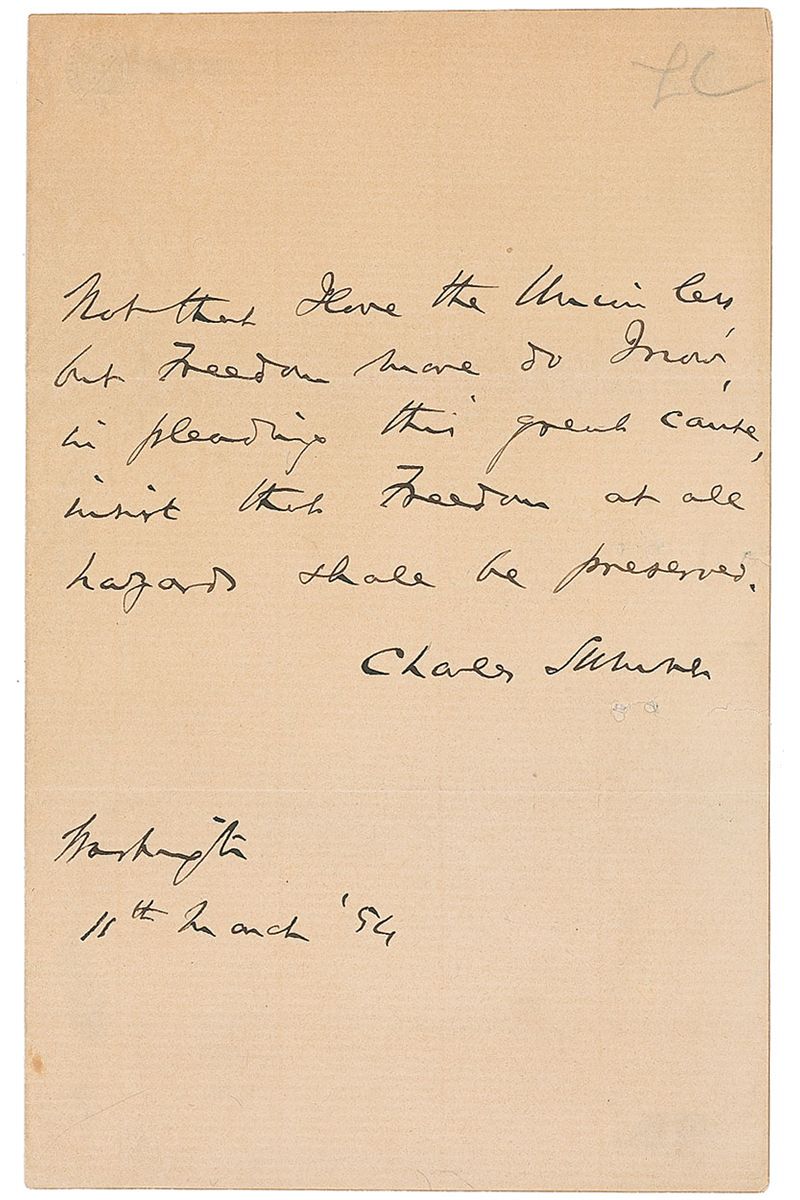 LC
Not that I love the Union less,
but Freedom more do I now,
in pleading this great cause,
insist that Freedom at all
hazards shall be preserved.
Charles Sumner
Washington
11th March '54